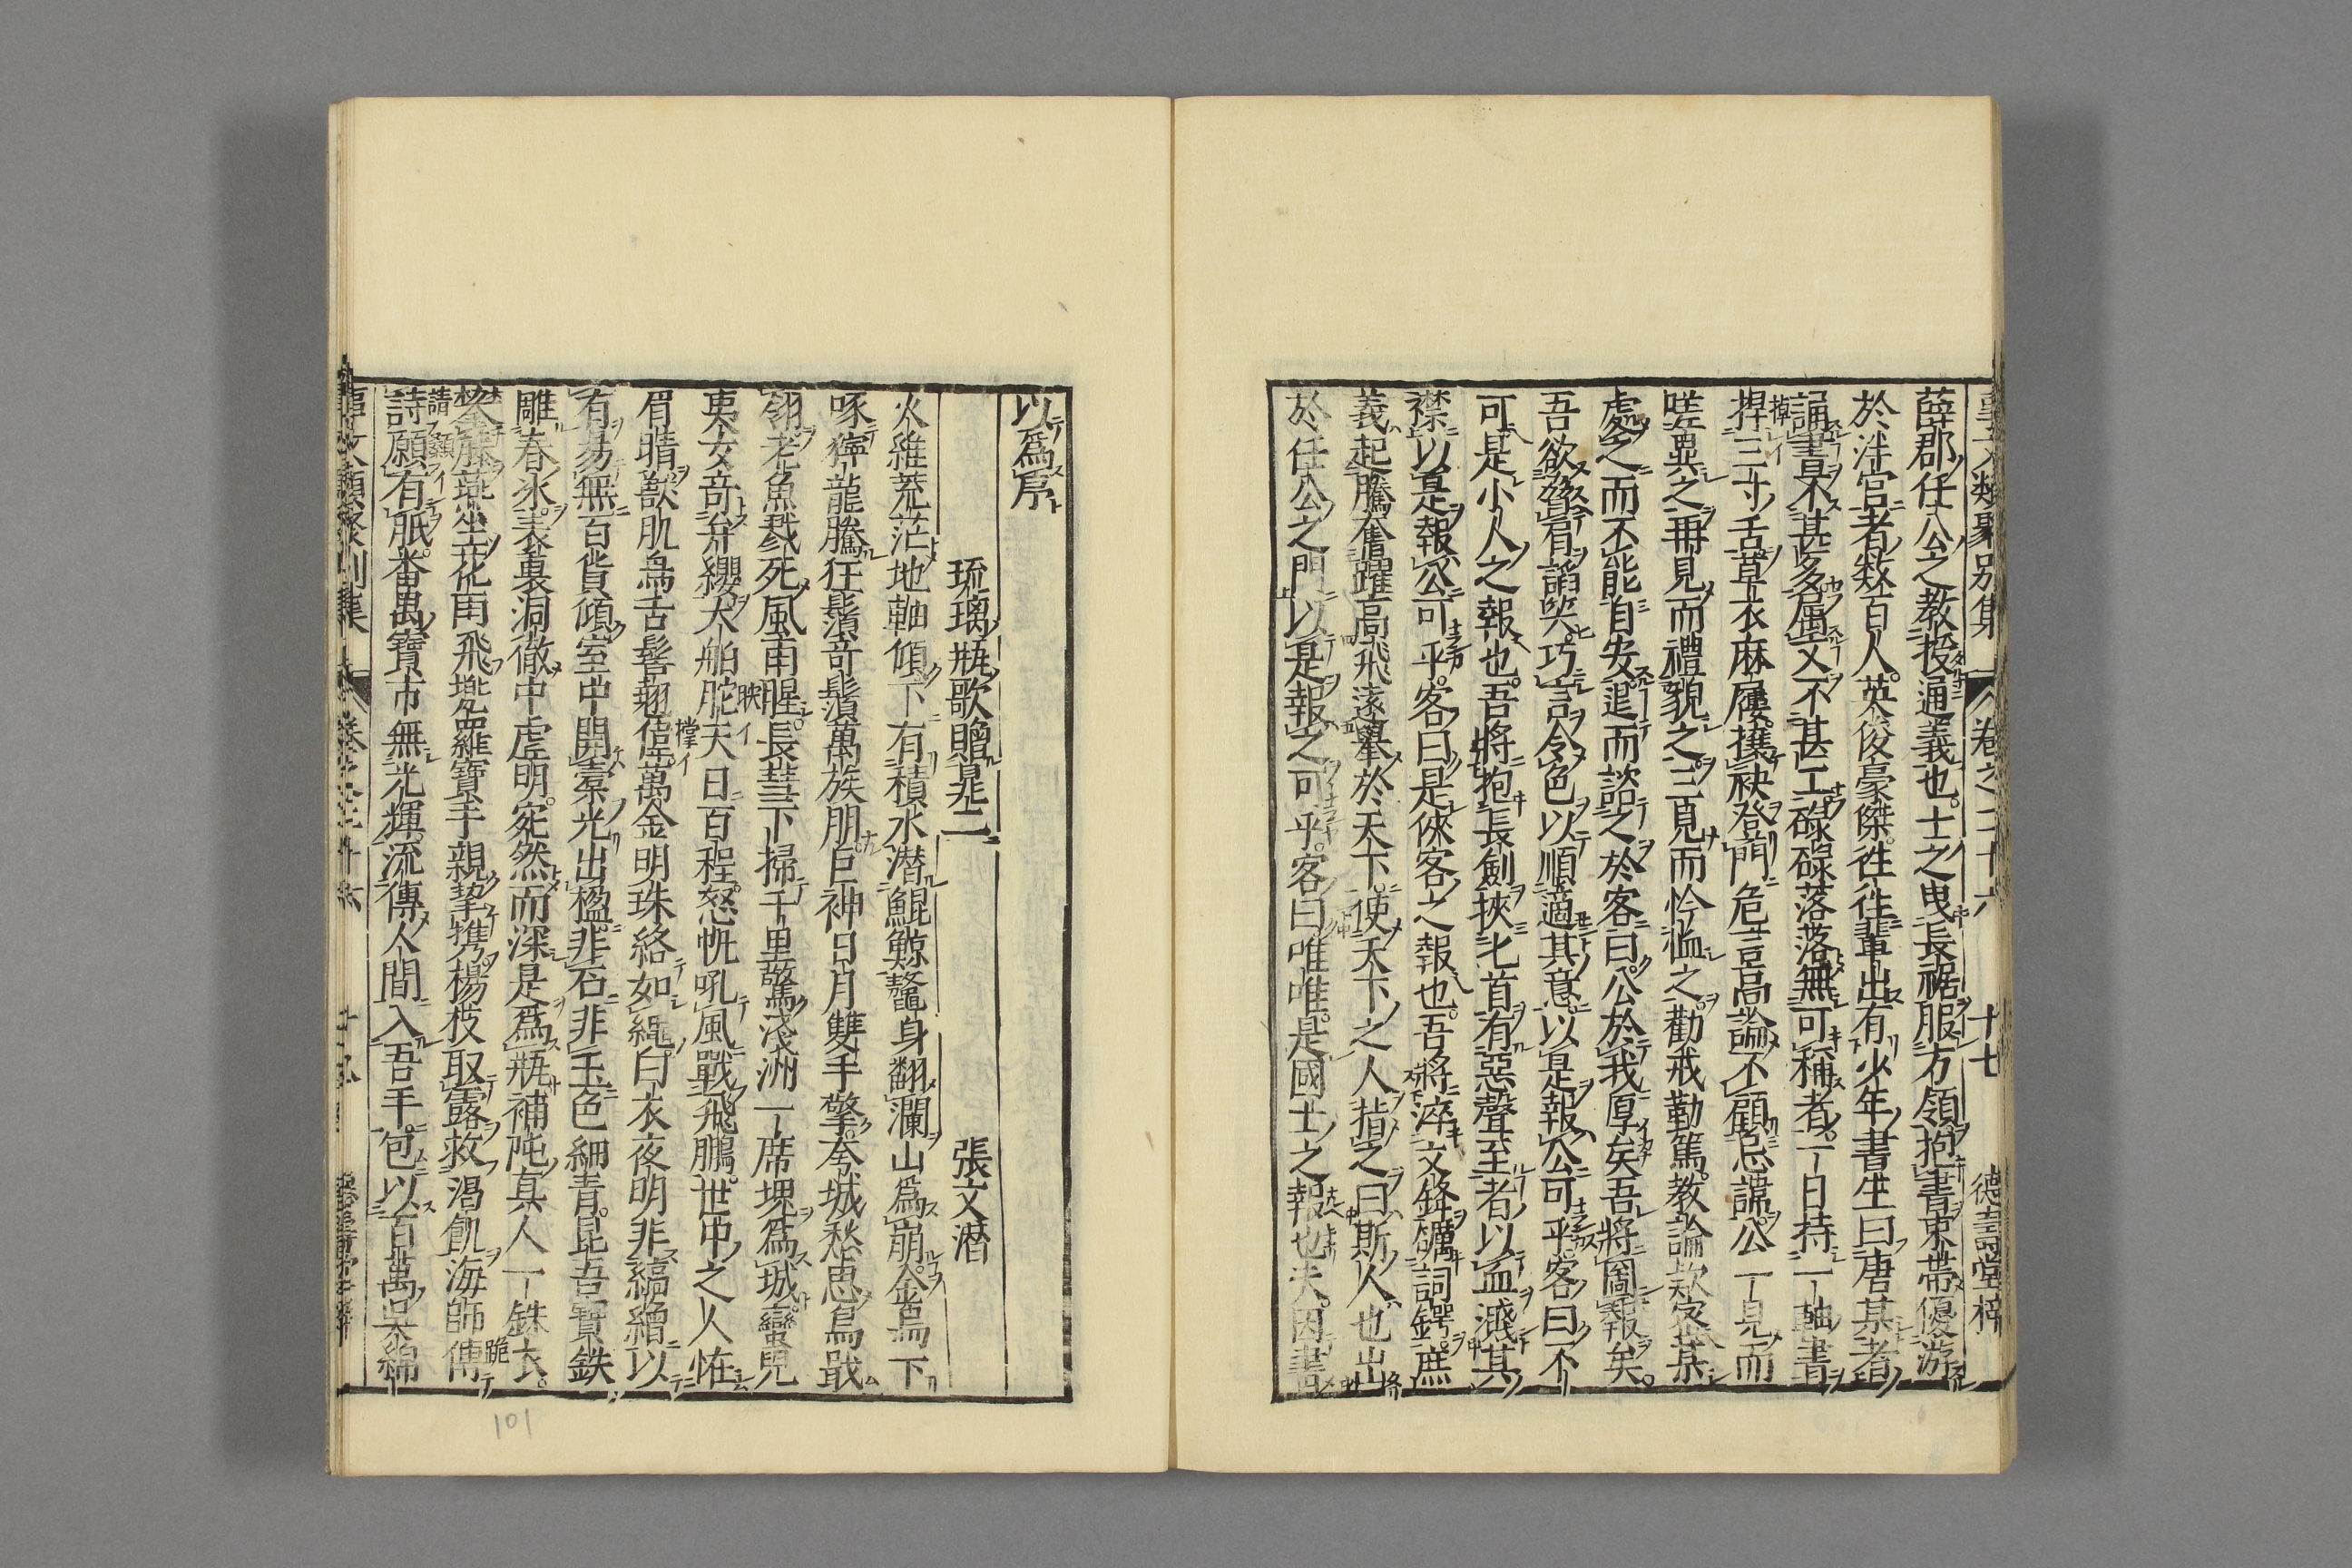 事文類聚別集 卷之二十六 十七 德壽堂梓
薛郡任公之教授通義也士之曳長裾服方領抱書束帶優游
於泮宮者数百人英俊豪傑徃徃輩出有少年書生曰唐某者
誦書是不甚多属文不甚工碌碌落落無可稱者一日持一軸書
掉三寸舌草衣麻屨攘袂登門危言高論不顧忌諱公一見而
嗟異之再見而禮貌之三見而怜恤之勸戒勤篤教論款密某
處之而不能自安退而諮之於客曰公於我厚矣吾將圖報矣
吾欲脅肩諂笑巧言令色以順適其意以是報公可乎客曰不
可是小人之報也吾將抱長劍挾匕首有惡聲至者以血濺其
襟以是報公可乎客曰是俠客之報也吾將淬文鋒礪詞鍔庶
義起騰奮躍高飛遠舉於天下使天下之人指之曰斯人也出
於任公之門以是報之可乎客曰唯唯是國士之報也夫因書
以爲序
琉璃瓶歌贈晁二 張文潛
火維荒茫地軸傾下有積水潜鯤鯨鼇身翻瀾山爲崩金烏下
啄獰龍騰狂鬚奇鬣萬族朋巨神日月雙手擎夸娥愁思烏戢
翎老魚戮死風雨腥長彗下掃千里驚淺洲一席堁爲城蠻兒
夷女奇弁纓大舶䑨天日百程怒帆吼風戰飛鵬世中之人怪
眉睛獸肌鳥舌髻翹偣萬金明珠絡如繩白衣夜明非縞繒以
有易無百貨傾室中開橐光出楹非石非玉色細青昆吾寶鉄
雕春氷表裏洞徹中虛明宛然而深是爲瓶補陁真人一銖衣
攀藤燕坐花雨飛兠羅寶手親挈携楊枝取露救渴飢海師傳
詩願有祇番禺寶市無光輝流傳人間入吾手包以百萬呉綿